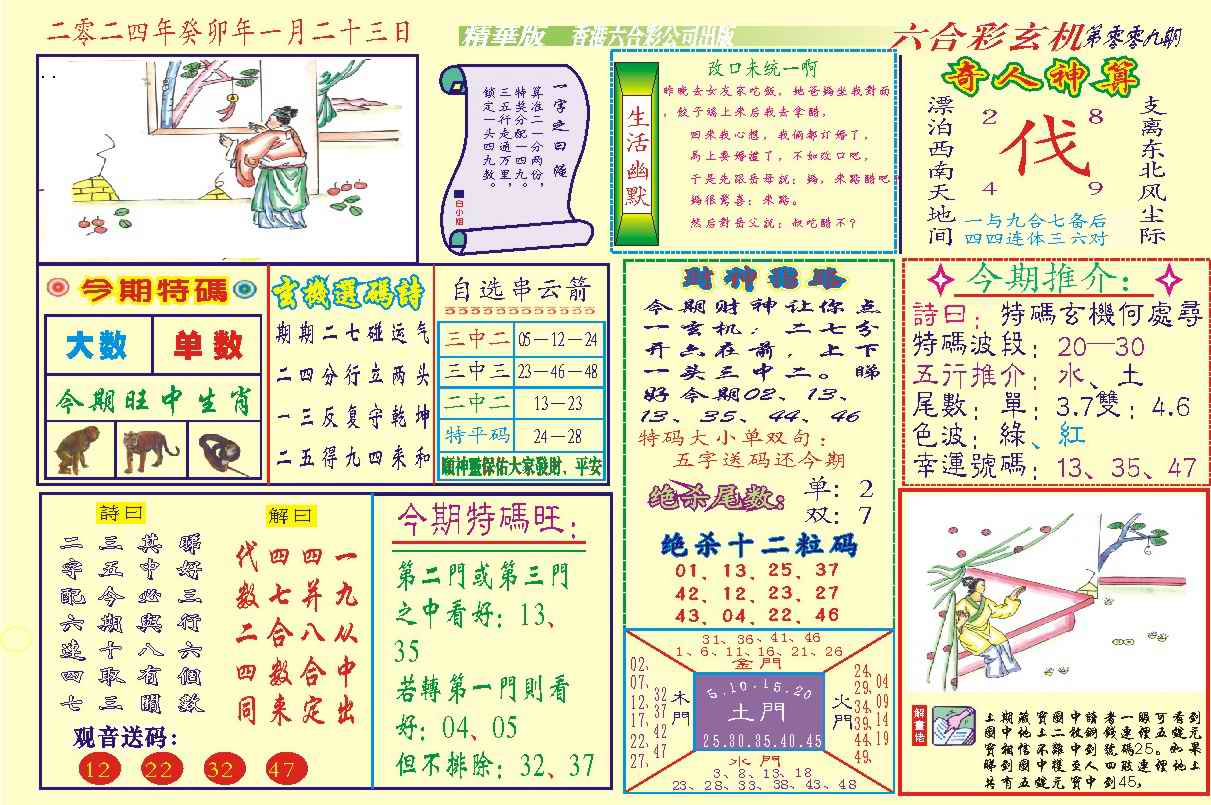 二零二四年癸卯年一月二十三日
精華版 香港六合彩公司出版
六合彩玄机第零零九期
一字之曰 隨
算准二一分两份，
特奖分二一分。
三五行走配一四九。
锁定一头四九数。
白小姐
生活幽默
改口未统一啊
昨晚去女友家吃飯，她爸媽坐我對面
，餃子端上来后我去拿醋，
回来我心想，我倆都订婚了，
馬上要婚禮了，不如改口吧，
于是先跟岳母説：媽，来點醋吧
媽很驚喜：来點。
然后對岳父説：叔吃醋不？
奇人神算
漂泊西南天地间
支离东北风尘际
2 8
伐
4 9
一与九合七备后
四四连体三六对
今期特碼
大数 单数
今期旺中生肖
玄機選碼詩
期期二七碰运气
二四分行立两头
一三反复守乾坤
二五得九四来和
自选串云箭
三中二 05—12—24
三中三 23—46—48
二中二 13—23
特平码 24—28
願神靈保佑大家發財、平安
财神指路
今期财神让你点
一玄机，二七分
开六在前，上下
一头三中二。睇
好今期02、13、
13、35、44、46
特码大小单双句：
五字送码还今期
绝杀尾数：
单：2
双：7
绝杀十二粒码
01、13、25、37
42、12、23、27
43、04、22、46
今期推介：
詩曰：特碼玄機何處尋
特碼波段：20—30
五行推介：水、土
尾數：單：3.7雙：4.6
色波：綠、紅
幸運號碼：13、35、47
詩曰
二三其睇
字五中好
配今必三
六期與行
連十八六
四取有個
七三關數
解曰
代四四一
数七并九
二合八从
四数合中
同来定出
观音送码：
12 22 32 47
今期特碼旺：
第二門或第三門
之中看好：13、
35
若轉第一門則看
好：04、05
但不排除：32、37
31、36、41、46
1、6、11、16、21、26
金門
02、07、12、17、22、27、
32 37 42 47
木門
5.10.15.20
土門
25.30.35.40.45
火門
24、29、34、39、44、49、
04 09 14 19
水門
3、8、13、18
23、28、33、38、43、48
解畫佬
上期藏寶圖中讀者一眼可看到
圖中地上二枚銅錢連裡五錠元
寶相信不難中到號碼25。如果
睇到圖中樓至人四肢連裡地上
共有五錠元寶中到45，